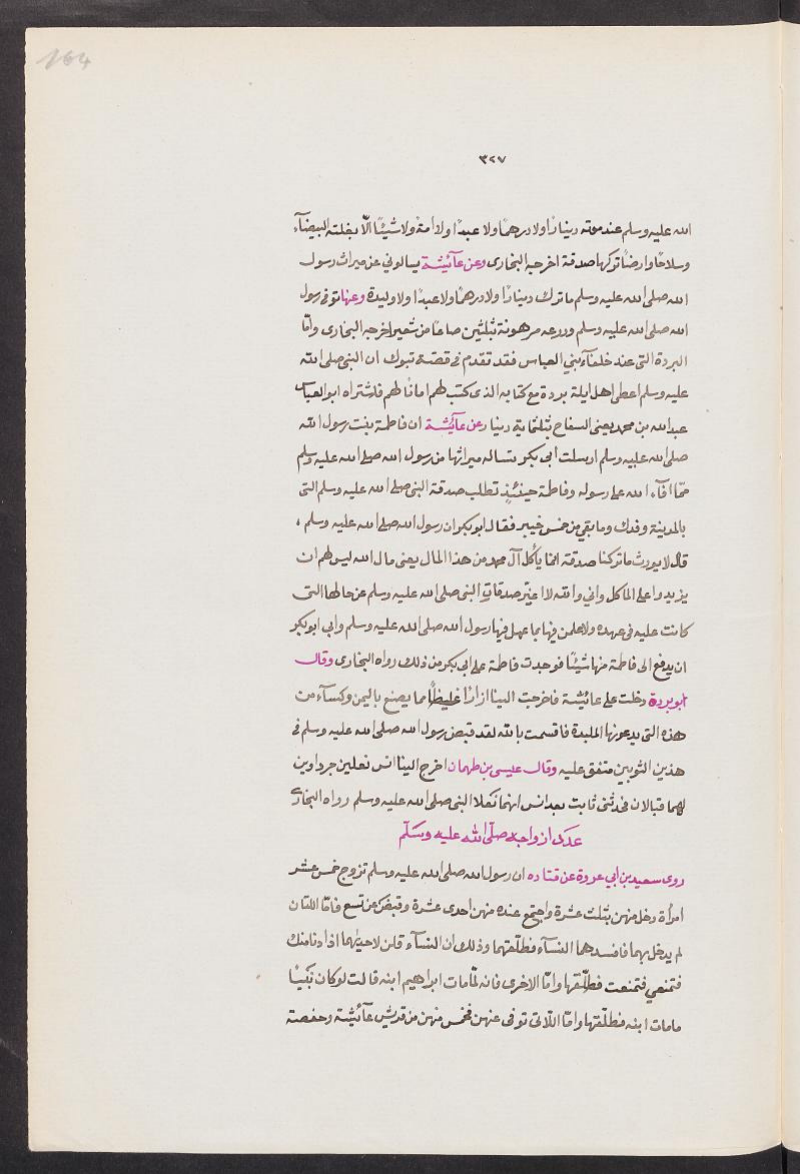 164
٣٢٧
الله عليه وسلم عند موته دينارًا ولا درهمًا ولا عبدًا ولا امة ولا شيئًا الّا بغلته البيضآء
وسلاحًا وارضًا تركها صدقة اخرجه البخارى وعن عآئيشة يسالوني عن ميراث رسول
الله صلى الله عليه وسلم ماترك دينارًا ولا درهمًا ولا عبدًا ولا وليدة وعنها توفى رسول
الله صلى الله عليه وسلم ودرعه مرهونة بثلثين صاعًا من شعير اخرجه البخارى وامّا
البردة التى عند خلفآء بني العباس فقد تقدم فى قصة تبوك ان النبى صلى الله
عليه وسلم اعطى اهل ايلة بردة مع كتابه الذى كتب لهم امانًا لهم فاشتراه ابو العباس
عبد الله بن محمد يعنى السفاح بثلثماية دينار وعن عآئيشة ان فاطمة بنت رسول الله
صلى الله عليه وسلم ارسلت ابى بكر تساله ميراثها من رسول الله صلى الله عليه وسلم
ممّا افآء الله على رسوله وفاطمة حينئذٍ تطلب صدقة النبى صلى الله عليه وسلم التى
بالمدينة وفدك ومابقي من خمس خيبر فقال ابو بكر ان رسول الله صلى الله عليه وسلم ،
قال لا يورث ماتركنا صدقة انما يأكل آل محمد من هذا المال يعنى مال الله ليس لهم ان
يزيدوا على الماكل واني والله لا اغيّر صدقاتِ النبى صلى الله عليه وسلم عن حالها التى
كانت عليه فى عهده ولاعملن فيها بما عمل فيها رسول الله صلى الله عليه وسلم وابى ابو بكر
ان يدفع الى فاطمة منها شيئًا فوجدت فاطمة على ابى بكر من ذلك رواه البخارى وقال
ابو بردة دخلت على عائيشة فاخرجت الينا ازارًا غليظًا مما يصنع باليمن وكسآء من
هذه التى يدعونها الملبدة فاقسمت بالله لقد قبض رسول الله صلى الله عليه وسلم فى
هذين الثوبين متفق عليه وقال عيسى بن طهمان اخرج الينا انس نعلين جرداوين
لهما قبالان فحدثنى ثابت بعد انس انهما نعلا النبى صلى الله عليه وسلم رواه البخارى
عدد ازواجه صلّى الله عليه وسلّم
روى سعيد بن ابي عروة عن قتاده ان رسول الله صلى الله عليه وسلم تزوج خمس عشر
امرأة دخل منهن بثلث عشرة واجتمع عنده منهن احدى عشرة وقبض عن تسع فامّا اللتان
لم يدخل بهما فافسدهما النسآء فطلّقهما وذلك ان النسآء قلن لاحديهما اذا دنا منك
فتمنعي فتمنعت فطلّقها وامّا الاخرى فانه لمّا مات ابراهيم ابنه قالت لو كان نبيّا
مامات ابنه فطلّقها وامّا اللآتى توفى عنهن فخمس منهن من قريش عآئيشة وحفصة